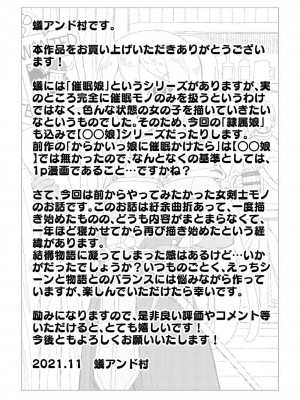 蟻アンド村です。
本作品をお買い上げいただきありがとうござい
ます！
蟻には「催眠娘」というシリーズがありますが、実
のところ完全に催眠モノのみを扱うというわけ
ではなく、色んな状態の女の子を描いていきたい
なというものでした。そのため、今回の「隷属娘」
も込みで【〇〇娘】シリーズだったりします。
前作の「からかいっ娘に催眠かけたら」は【〇〇娘
】では無かったので、なんとなくの基準としては、
1p漫画であること…ですかね？
さて、今回は前からやってみたかった女剣士モノ
のお話です。このお話は紆余曲折あって、一度描
き始めたものの、どうも内容がまとまらなくて、
一年ほど寝かせてから再び描き始めたという経
緯があります。
結構物語に凝ってしまった感はあるけど…いか
がだったでしょうか？いつものごとく、えっちシ
ーンと物語とのバランスには悩みながら作って
いますが、楽しんでいただけたら幸いです。
励みになりますので、是非良い評価やコメント等
いただけると、とても嬉しいです！
今後ともよろしくお願いいたします！
2021.11　蟻アンド村